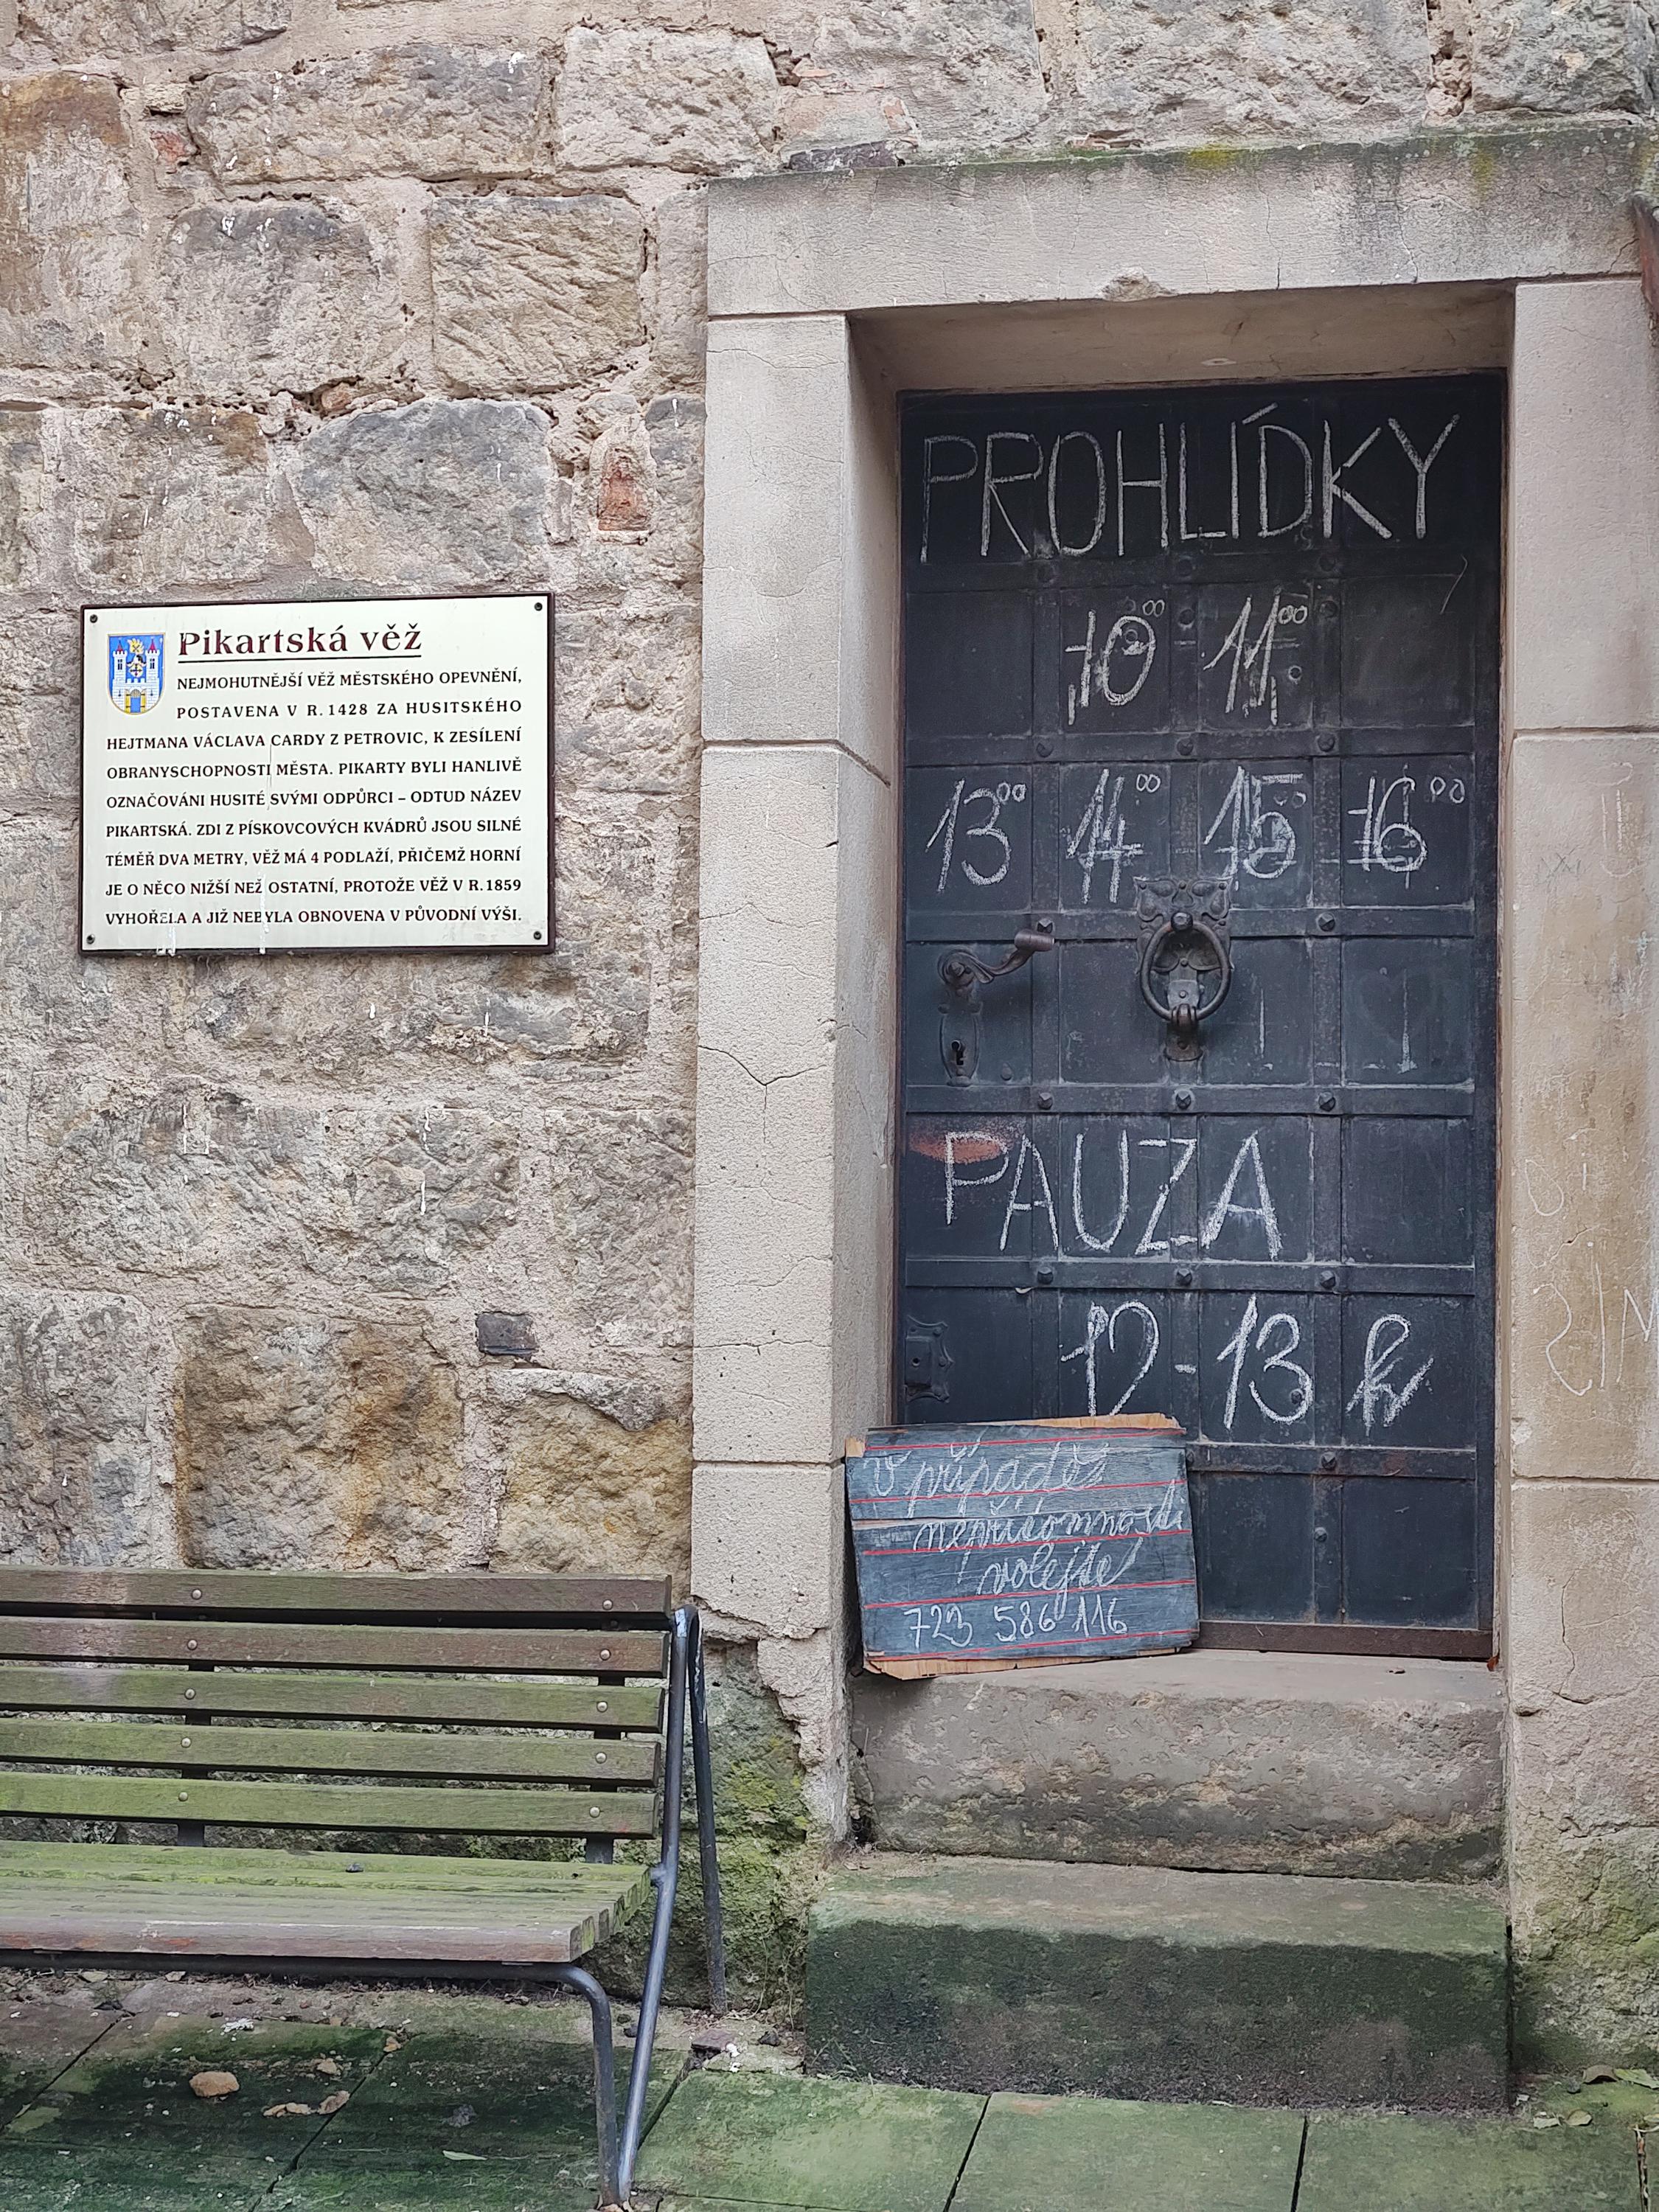 Pikartská věž
NEJMOHUTNĚJŠÍ VĚŽ MĚSTSKÉHO OPEVNĚNÍ,
POSTAVENA V R. 1428 ZA HUSITSKÉHO
HEJTMANA VÁCLAVA CARDY Z PETROVIC, K ZESÍLENÍ
OBRANYSCHOPNOSTI MĚSTA. PIKARTY BYLI HANLIVĚ
OZNAČOVÁNI HUSITÉ SVÝMI ODPŮRCI – ODTUD NÁZEV
PIKARTSKÁ. ZDI Z PÍSKOVCOVÝCH KVÁDRŮ JSOU SILNÉ
TÉMĚŘ DVA METRY, VĚŽ MÁ 4 PODLAŽÍ, PŘIČEMŽ HORNÍ
JE O NĚCO NIŽŠÍ NEŽ OSTATNÍ, PROTOŽE VĚŽ V R. 1859
VYHOŘELA A JIŽ NEBYLA OBNOVENA V PŮVODNÍ VÝŠI.
PROHLÍDKY
10⁰⁰ 11⁰⁰
13⁰⁰ 14⁰⁰ 15⁰⁰ 16⁰⁰
PAUZA
12 - 13
V případě
nepřítomnosti
volejte
723 586 116